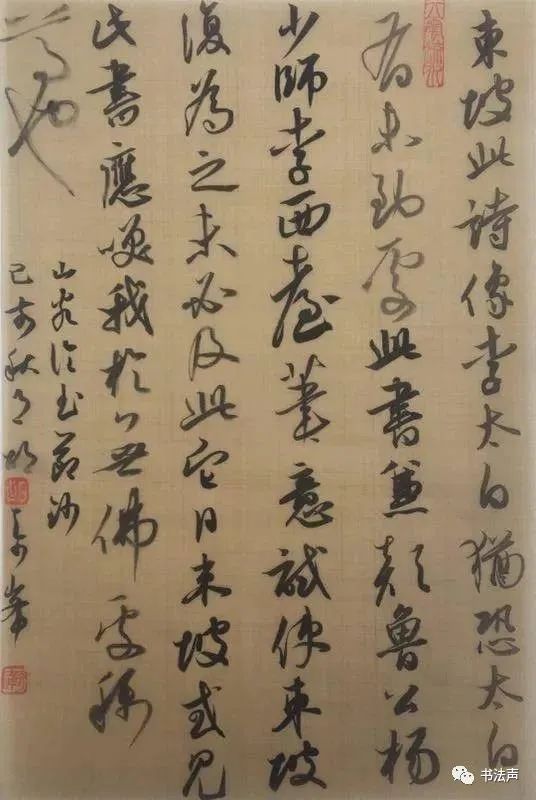 東坡此詩像李太白猶恐太白
有未到處此書兼顏魯公楊
少師李西臺筆意試使東坡
復為之未必及此它日東坡或見
此書應笑我於無佛處稱
尊也
山谷論書節沙
己亥秋月
書法声